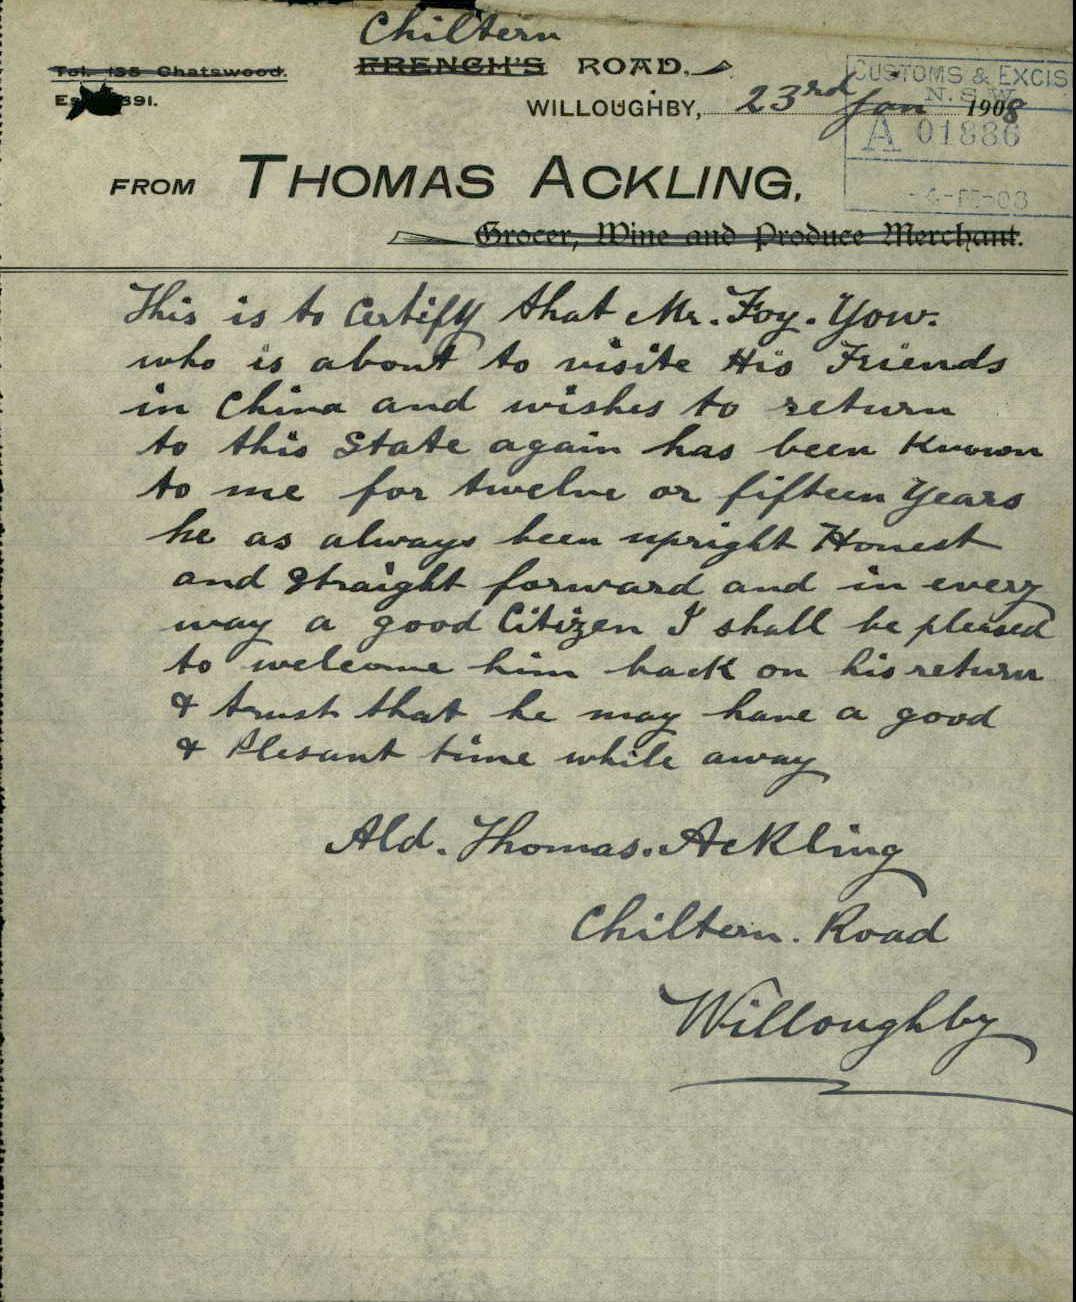 Chiltern
Tel. 135 Chatswood.
FRENCH'S ROAD.
CUSTOMS & EXCIS
N.S.W.
WILLOUGHBY, 23rd Jan 1908
A 01886
FROM THOMAS ACKLING,
Grocer, Wine and Produce Merchant.
This is to Certify that Mr. Foy. Yow.
who is about to visite His Friends
in China and wishes to return
to this State again has been Known
to me for twelve or fifteen Years
he as always been upright Honest
and Straight forward and in every
way a good Citizen I shall be pleased
to welcome him back on his return
& trust that he may have a good
& Plesant time while away
Ald. Thomas. Ackling
Chiltern. Road
Willoughby